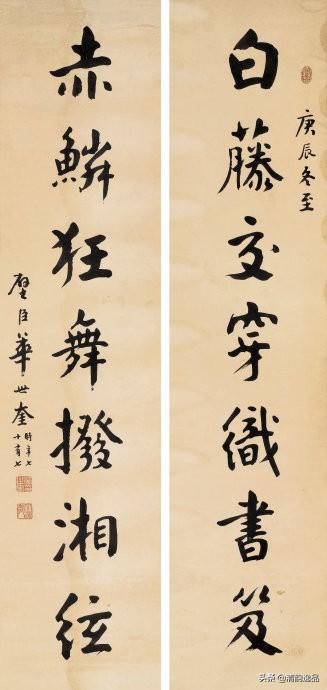 白藤交穿織書笈
庚辰冬至
赤鱗狂舞撥湘絃
璧臣華世奎時年七
十有七
头条@清韵逸品